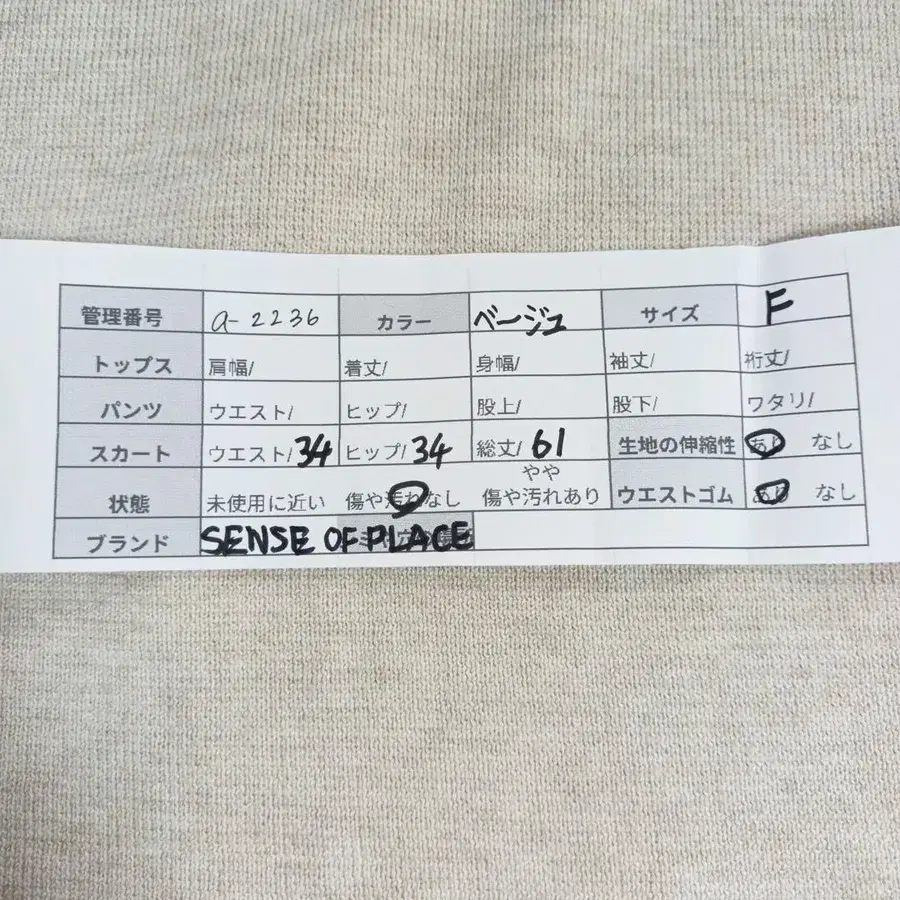 管理番号 a-2236 カラー ベージュ サイズ F
トップス 肩幅/ 着丈/ 身幅/ 袖丈/ 裄丈/
パンツ ウエスト/ ヒップ/ 股上/ 股下/ ワタリ/
スカート ウエスト/34 ヒップ/34 総丈/61 生地の伸縮性 あり なし
状態 未使用に近い 傷や汚れなし やや傷や汚れあり ウエストゴム あり なし
ブランド SENSE OF PLACE